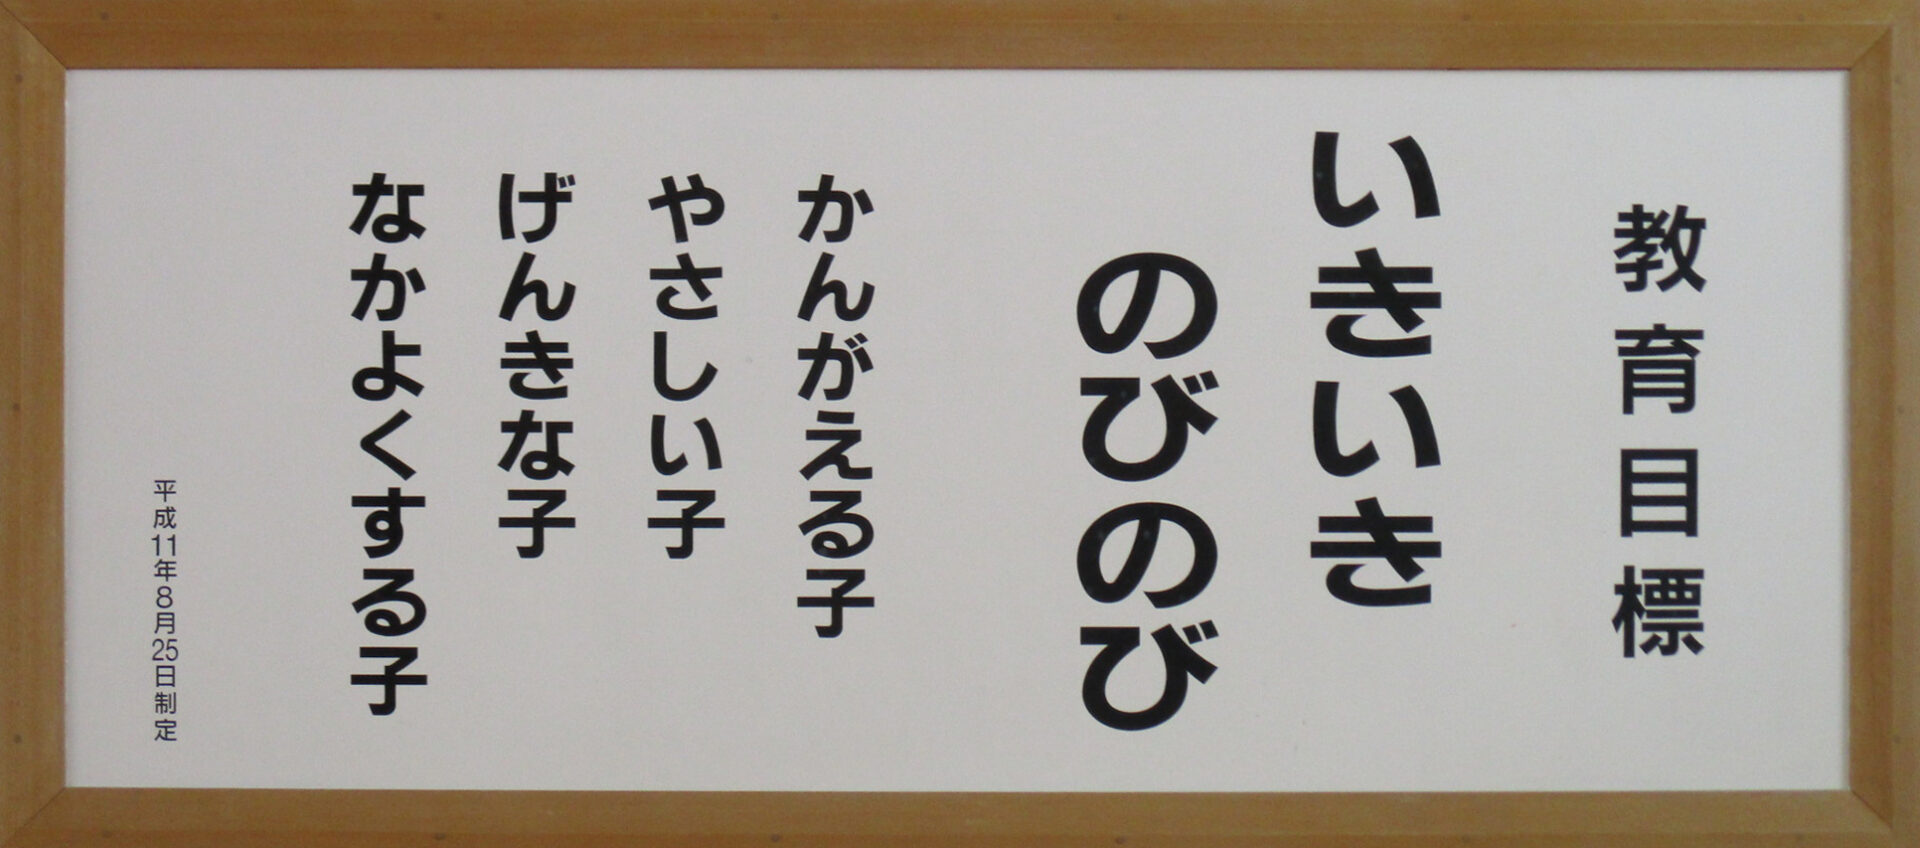 教育目標
いきいき
のびのび
かんがえる子
やさしい子
げんきな子
なかよくする子
平成11年8月25日制定